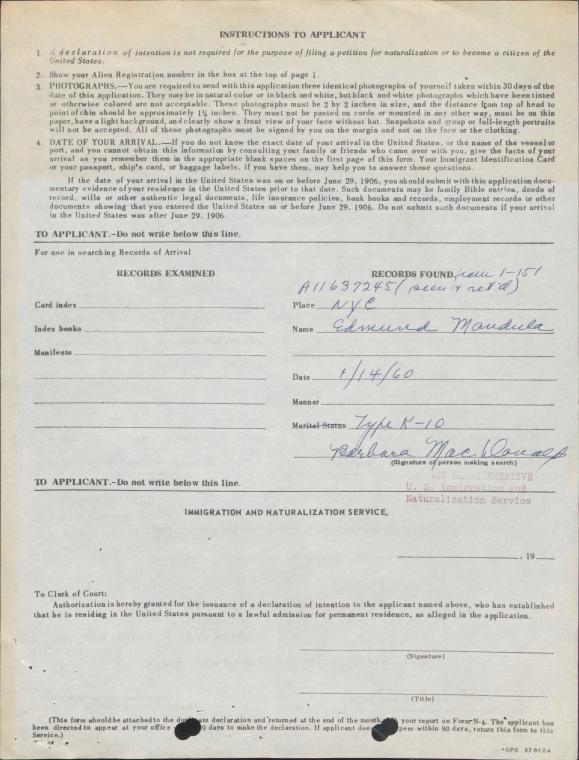 INSTRUCTIONS TO APPLICANT
1. A declaration of intention is not required for the purpose of filing a petition for naturalization or to become a citizen of the
United States.
2. Show your Alien Registration number in the box at the top of page 1.
3. PHOTOGRAPHS.—You are required to send with this application three identical photographs of yourself taken within 30 days of the
date of this application. They may be in natural color or in black and white, but black and white photographs which have been tinted
or otherwise colored are not acceptable. These photographs must be 2 by 2 inches in size, and the distance from top of head to
point of chin should be approximately 1¼ inches. They must not be pasted on cards or mounted in any other way, must be on thin
paper, have a light background, and clearly show a front view of your face without hat. Snapshots and group or full-length portraits
will not be accepted. All of these photographs must be signed by you on the margin and not on the face or the clothing.
4. DATE OF YOUR ARRIVAL.—If you do not know the exact date of your arrival in the United States, or the name of the vessel or
port, and you cannot obtain this information by consulting your family or friends who came over with you, give the facts of your
arrival as you remember them in the appropriate blank spaces on the first page of this form. Your Immigrant Identification Card
or your passport, ship's card, or baggage labels, if you have them, may help you to answer these questions.
If the date of your arrival in the United States was on or before June 29, 1906, you should submit with this application docu-
mentary evidence of your residence in the United States prior to that date. Such documents may be family Bible entries, deeds of
record, wills or other authentic legal documents, life insurance policies, bank books and records, employment records or other
documents showing that you entered the United States on or before June 29, 1906. Do not submit such documents if your arrival
in the United States was after June 29, 1906.
TO APPLICANT.-Do not write below this line.
For use in searching Records of Arrival
RECORDS EXAMINED
Card index
Index books
Manifests
RECORDS FOUND from 1-151
A11637245 (seen & ret'd)
Place NYC
Name Edmund Mandula
Date 1/14/60
Manner
Marital Status Type K-10
Barbara MacDonald
(Signature of person making search)
U. S. Immigration and
Naturalization Service
TO APPLICANT.-Do not write below this line.
IMMIGRATION AND NATURALIZATION SERVICE,
, 19
To Clerk of Court:
Authorization is hereby granted for the issuance of a declaration of intention to the applicant named above, who has established
that he is residing in the United States pursuant to a lawful admission for permanent residence, as alleged in the application.
(Signature)
(Title)
(This form should be attached to the declaration and returned at the end of the month your report on Form N-4. The applicant has
been directed to appear at your office days to make the declaration. If applicant does within 90 days, return this form to this
Service.)
GPO